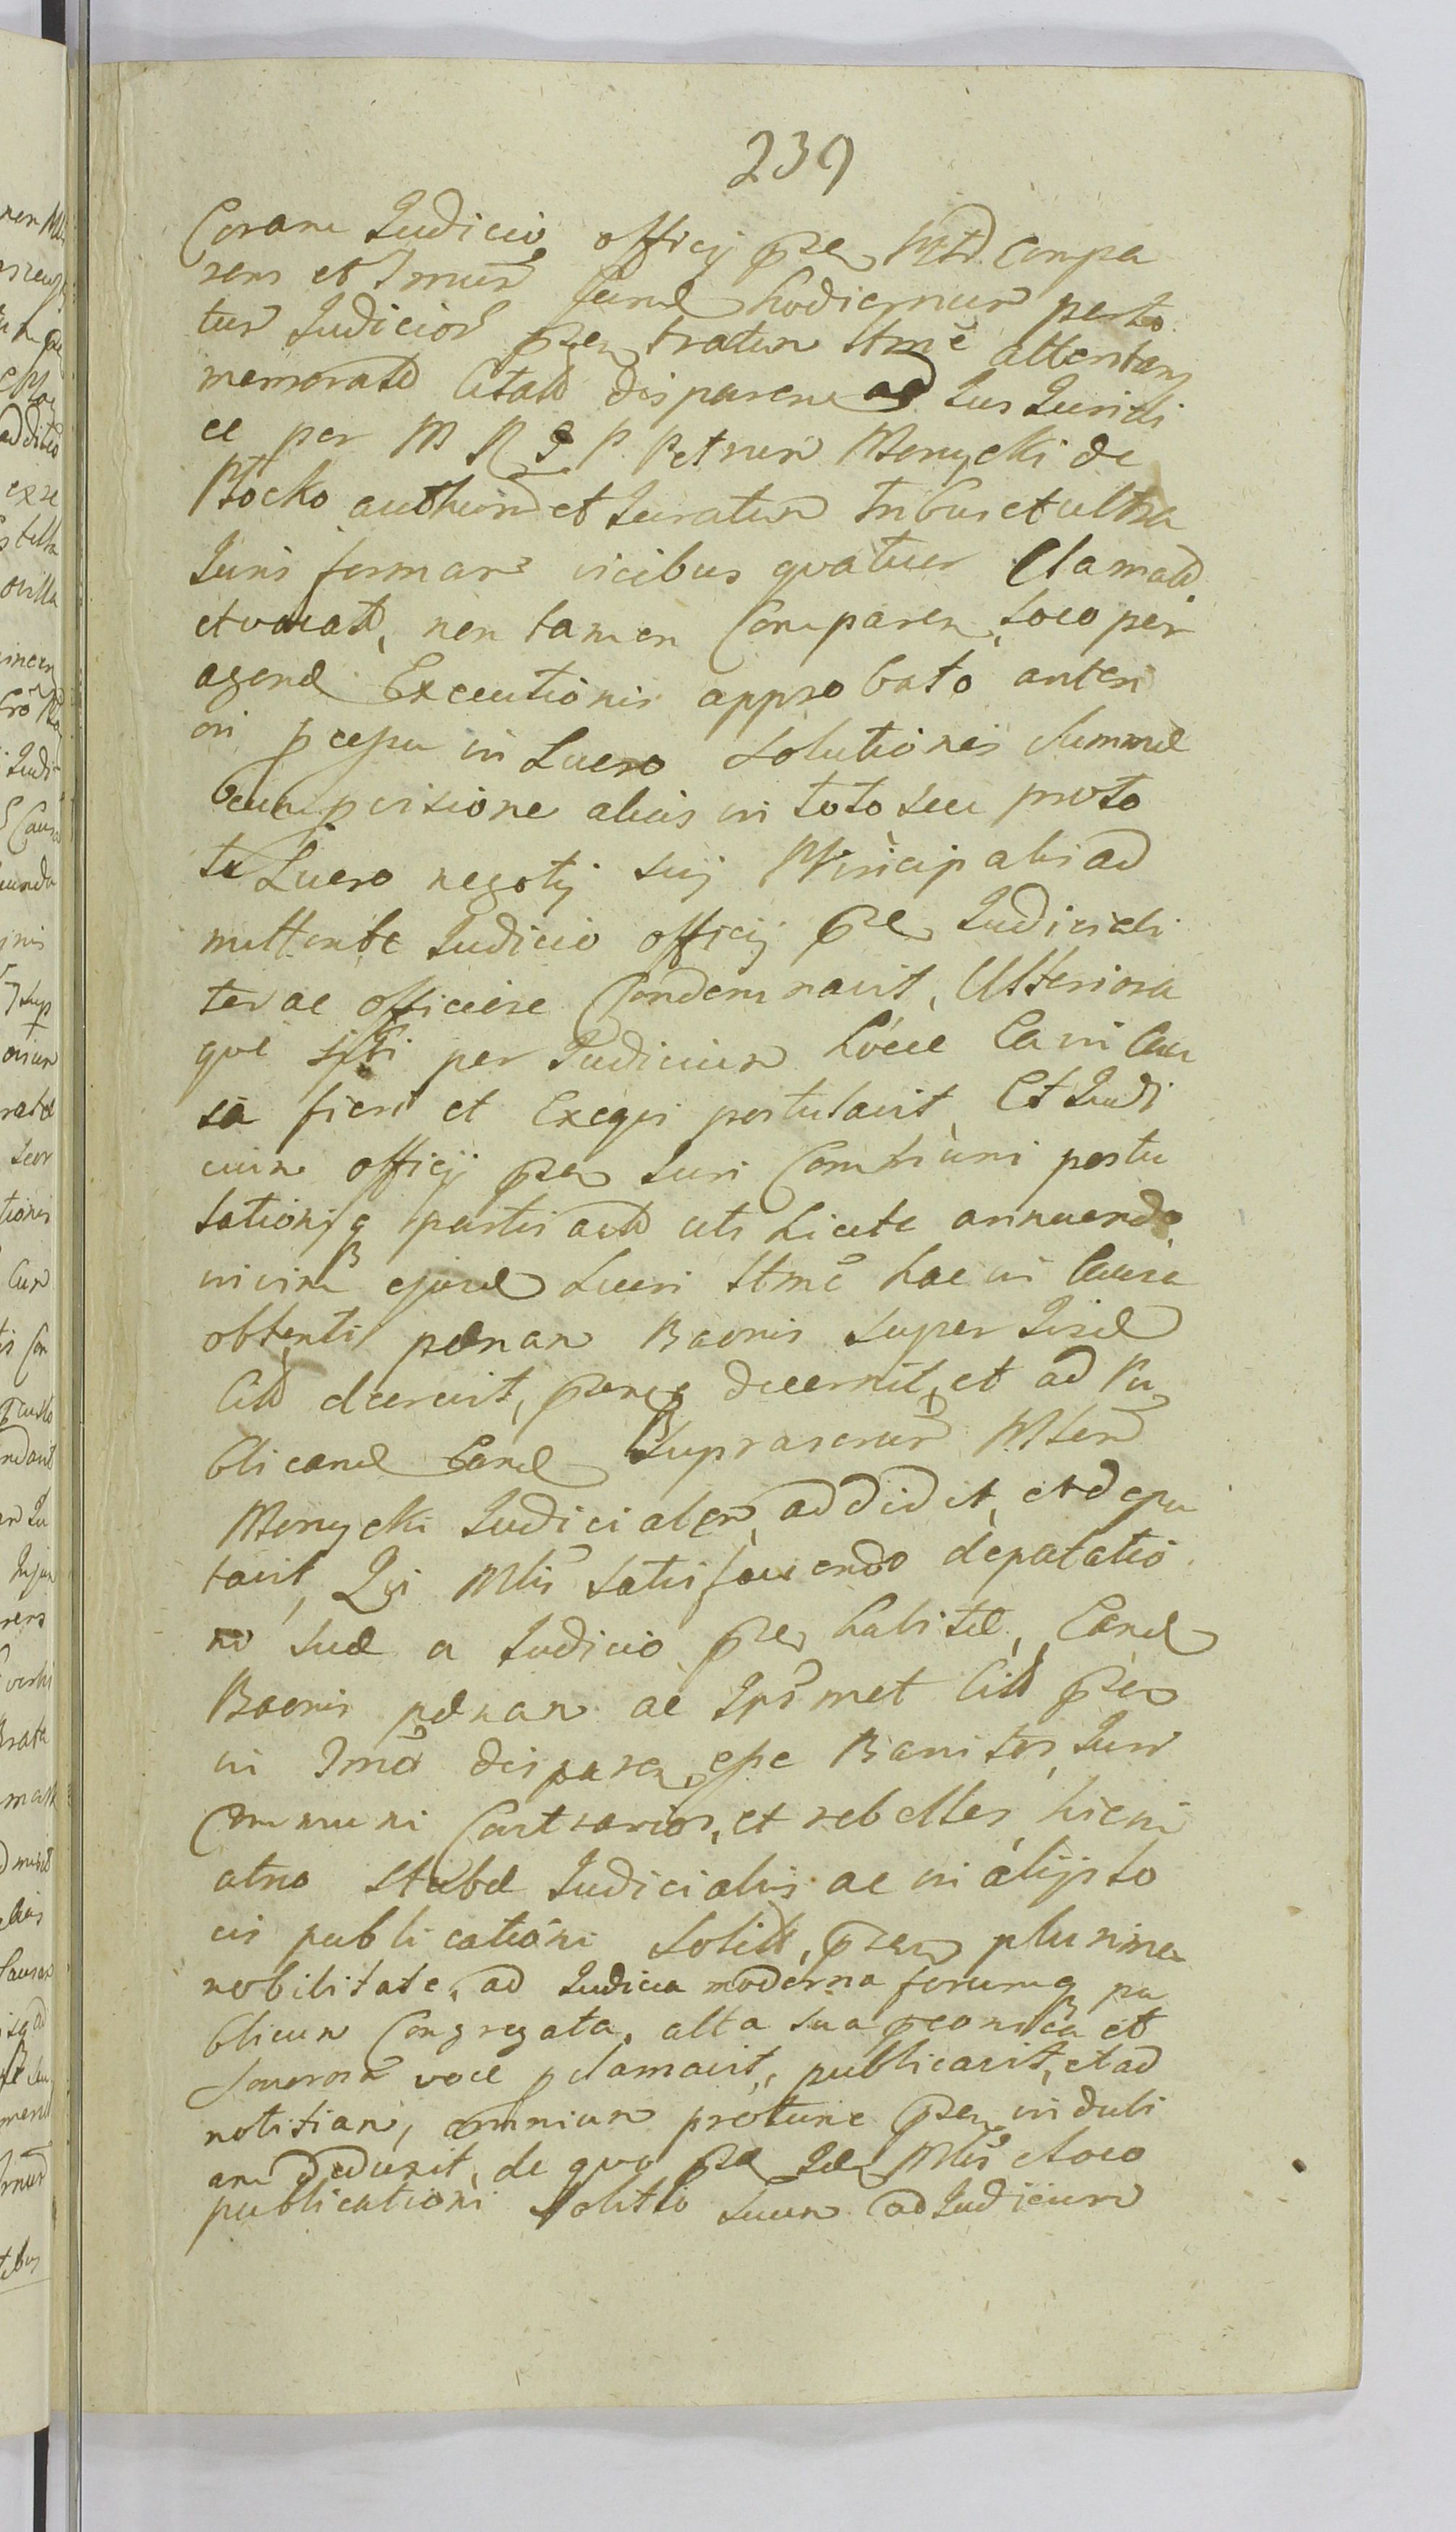 239
Coram Judicio officij pñ Citd. Compa
rens et Tmũ hodiernum perto
tum Judicior pñ tratum Itmẽ attentan
memoratd Citatd disparen ad Jus Juridi
ce per M R J P Petrum Monycki de
Płocko authum et Juratum tribus et ultra
Juris formam vicibus qvatuor Clamatd
et vocatd, non tamen Comparen, loco per
agend Executionis approbato anteri
ori pcepu in Lucro Solutionis Summæ
cum pvisione alias in toto seu proto
to Lucro negotij sui Principalis ad
mittente Judicio officij pñ Judiciali
ter ac officiose Condemnavit, Ulteriora
qve sibi per Judicium hocce Ea in Cau
sa fieri et Exeqvi postulavit, Et Judi
cium officij pñ Juri Communi postu
lationi q partis actd uti Licite annuendo
in vim ejusd Lucri Itmẽ hac in Causa
obtenti pænam Banis super Iisd
Citd decrevit, decernit, et ad Pu
blicand Eand Suprascrum Mlem
Monycki Judicialem addidit, et depu
tavit, Qvi Mlis satisfaciendo deputatio
ni suæ a Judicio pñ habitæ, Eand
Baonis pænam ac Ipsmet Citd pñ
in Tmo disparen, esse Banitos, Juri
Communi Contrarios, et rebelles, hic in
atrio Stubæ Judicialis ac in alijs lo
cis publicationi Solitd, pñ plurima
nobilitate, ad Judicia moderna forumq pu
blicum Congregata, alta sua pconica et
sonorosa voce pclamavit, publicavit, et ad
notitiam, omnium protunc pñ indubi
am deduxit, de qvo pñ Id Mlis eloco
publicationi Solitto suum ad Judicium